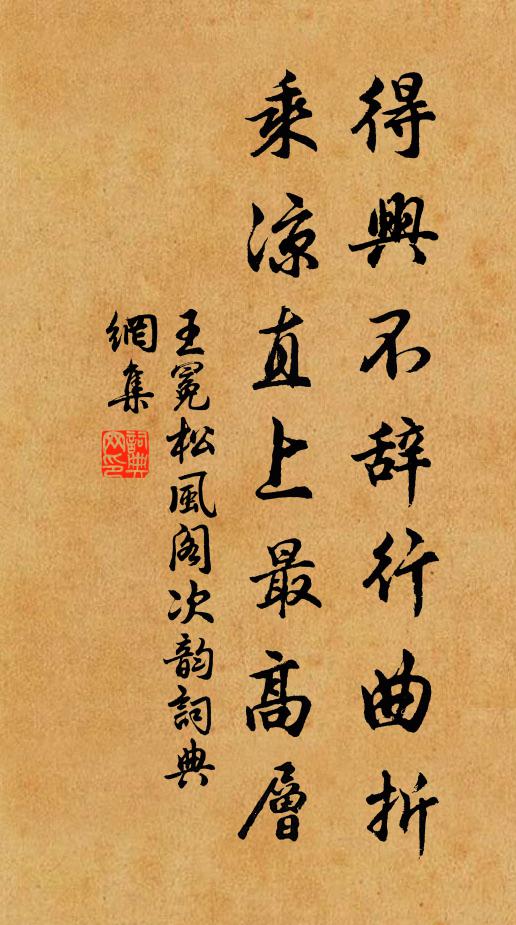 得興不辞行曲折
乘涼直上最高層
王冕松風阁次韵詞典
網集
詞典
网印